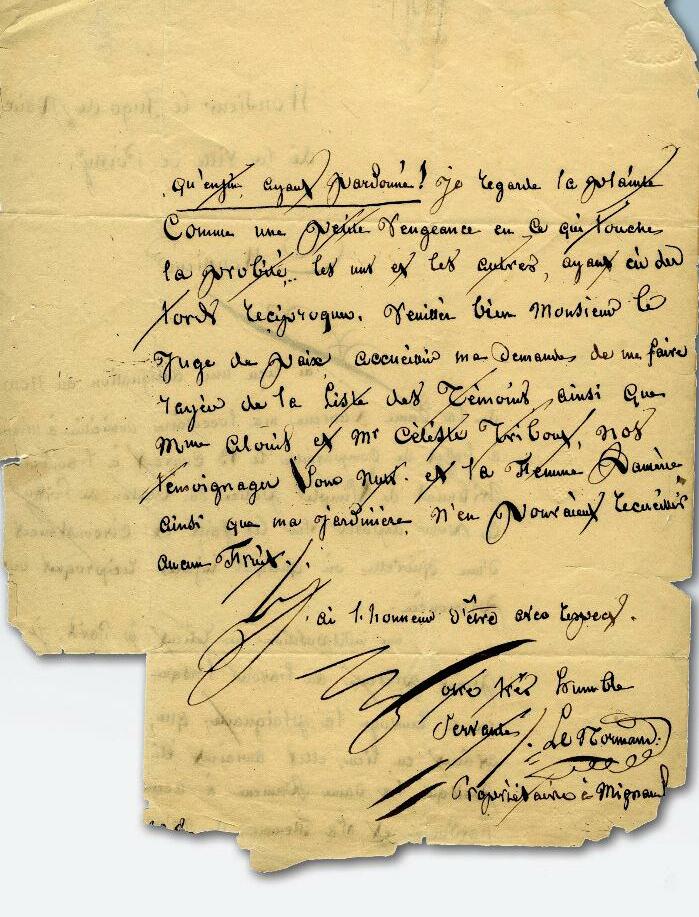 qu'enfin ayant pardonné! je regarde la plainte
Comme une petite Vengeance en ce qui touche
la probité, les uns et les autres, ayant eü des
tords reciproques. Veuillér bien Monsieur le
Juge de Paix, accuëiair ma demande de me faire
rayér de la Liste des Témoins ainsi que
Mme Aloüis et Mr Céleste Triboux, nos
temoignages Sonx Nuls. et la Femme Damène
ainsi que ma jardinière, n'en Pouraient recueillir
aucun Fruit.
J'ai l'honneur d'être avec respect.
Votre très humble
Servante. Le Normand.
Propriétaire à Mignaux